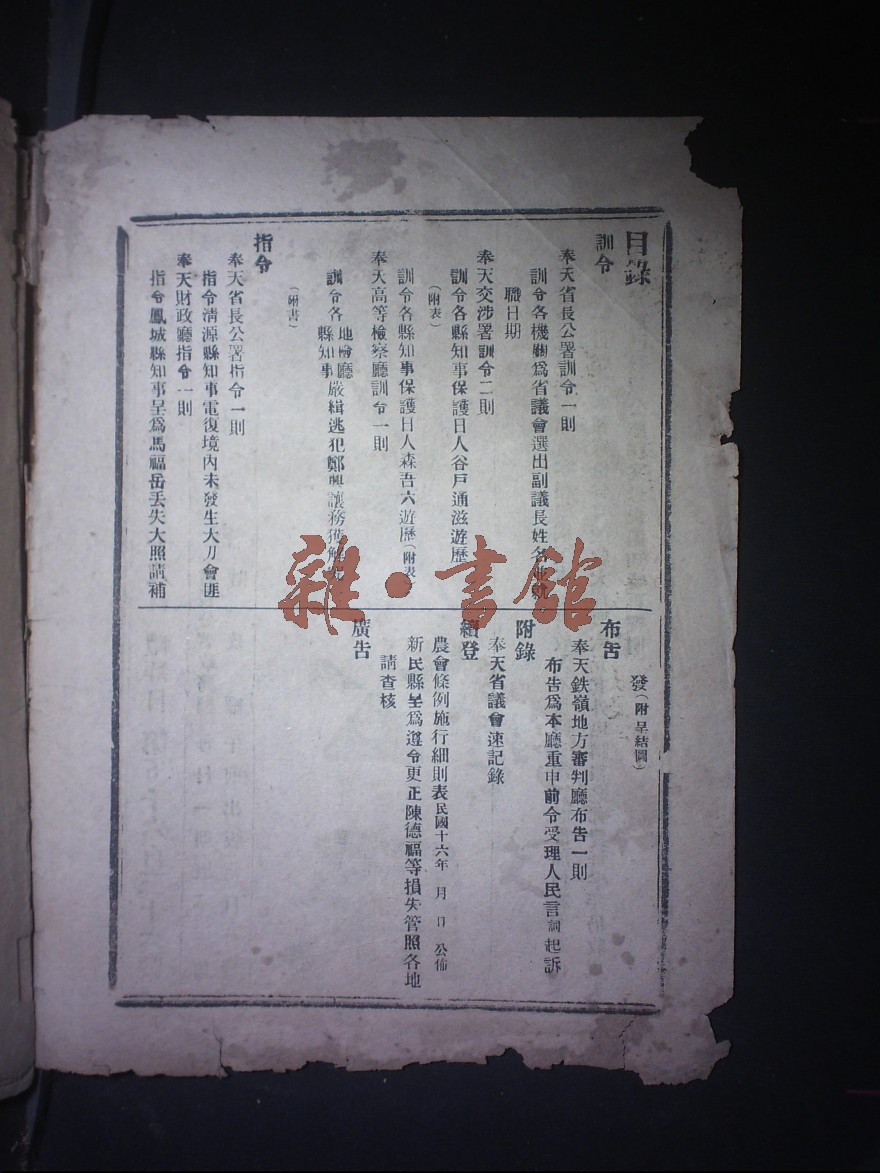 目錄
訓令
奉天省長公署訓令一則
訓令各機關爲省議會選出副議長姓名
職日期
奉天交涉署訓令二則
訓令各縣知事保護日人谷戸通滋遊歷
(附表)
訓令各縣知事保護日人森吾六遊歷(附表
奉天高等檢察廳訓令一則
訓令各地檢廳
縣知事嚴緝逃犯鄭興讓務獲解
(附書)
指令
奉天省長公署指令一則
指令清源縣知事電復境內未發生大刀會匪
奉天財政廳指令一則
指令鳳城縣知事呈爲馬福岳丟失大照請補
發(附呈結圖)
布告
奉天鉄嶺地方審判廳布告一則
布告爲本廳重申前令受理人民言詞起訴
附錄
奉天省議會速記錄
續登
農會條例施行細則表民國十六年 月 日 公佈
新民縣呈爲遵令更正陳德福等損失管照各地
請查核
廣告
雜·書館